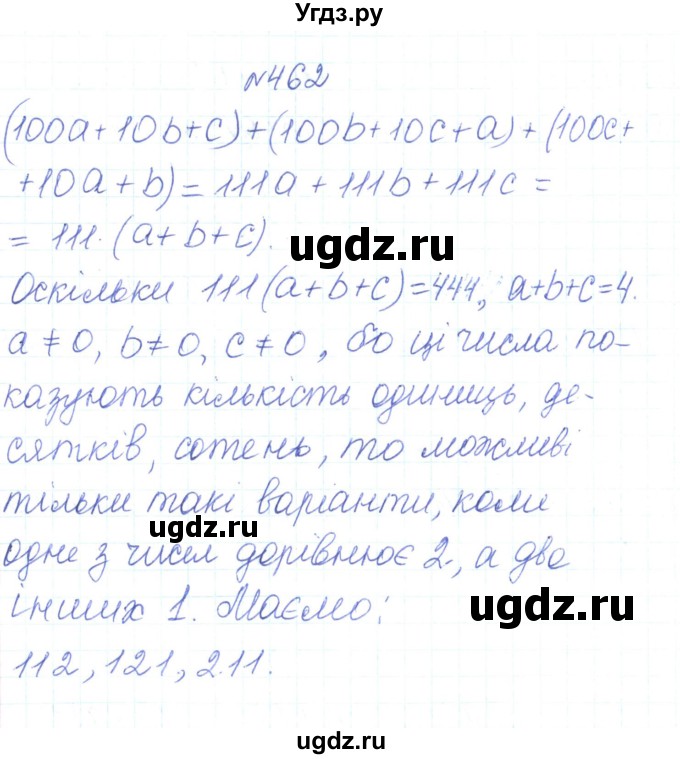 Угдз.ру
№462
(100a+10b+c)+(100b+10c+a)+(100c+
+10a+b)=111a+111b+111c=
=111·(a+b+c).
ugdz.ru
Оскільки 111(a+b+c)=444, a+b+c=4.
a≠0, b≠0, c≠0, бо ці числа по-
казують кількість одиниць, де-
сятків, сотень, то можливі
тільки такі варіанти, коли
ugdz.ru
одне з чисел дорівнює 2, а два
інших 1. Маємо:
ugdz.ru
112, 121, 211.
ugdz.ru